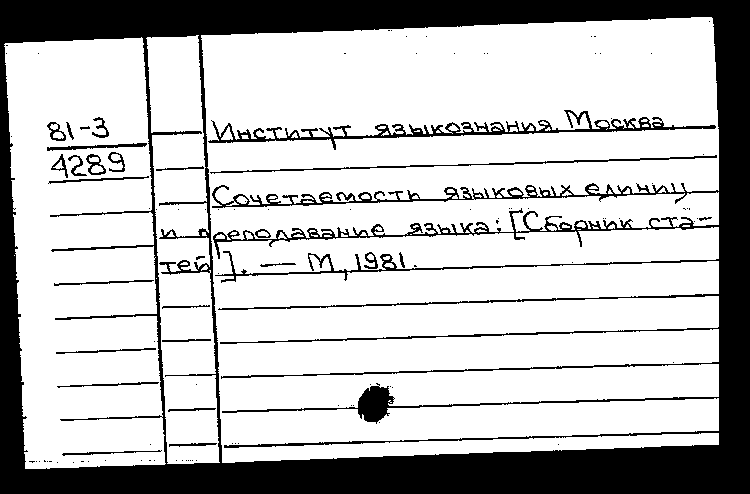 81-3
4289
Институт языкознания. Москва.
Сочетаемость языковых единиц
и преподавание языка: [Сборник ста-
тей]. — М., 1981.